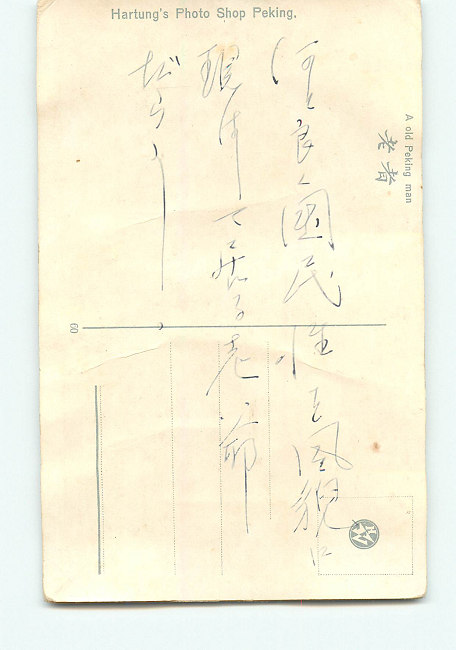 Hartung's Photo Shop Peking.
A old Peking man
老者
何と良く國民性を風貌に
現はして居る老爺
だらう
60